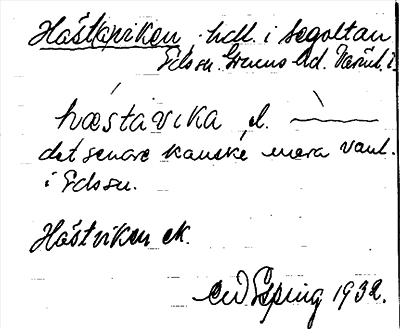 Hästviken hdl. i Segoltan
Edssn. Grums hd. Värml. l.
hæstavika el.
det senare kanske mera vanl.
i Edssn.
Hästviken ek.
1932.